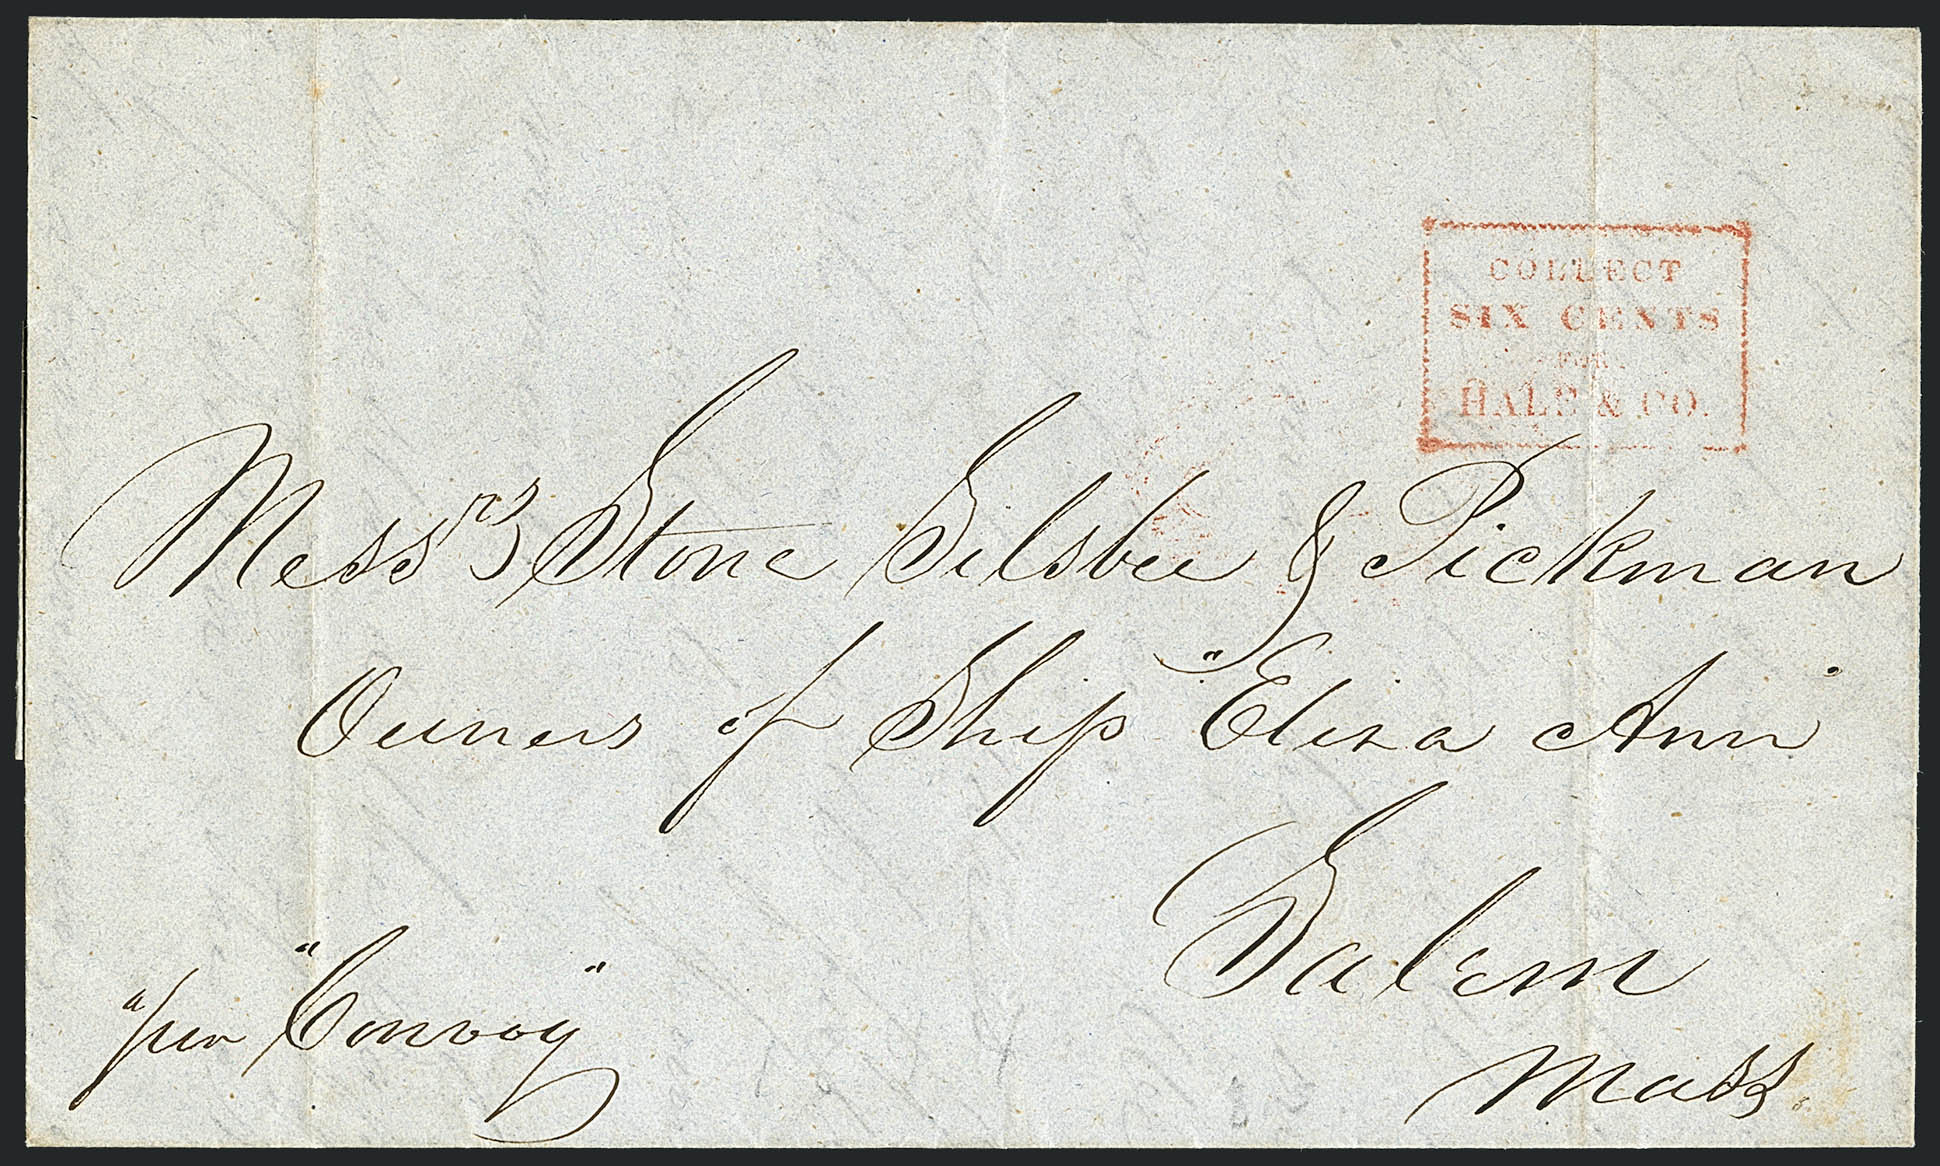 COLLECT
SIX CENTS
FOR
HALE & CO.
Messrs Stone Silsbee & Pickman
Owners of Ship "Eliza Ann"
Salem
Mass
per "Convoy"